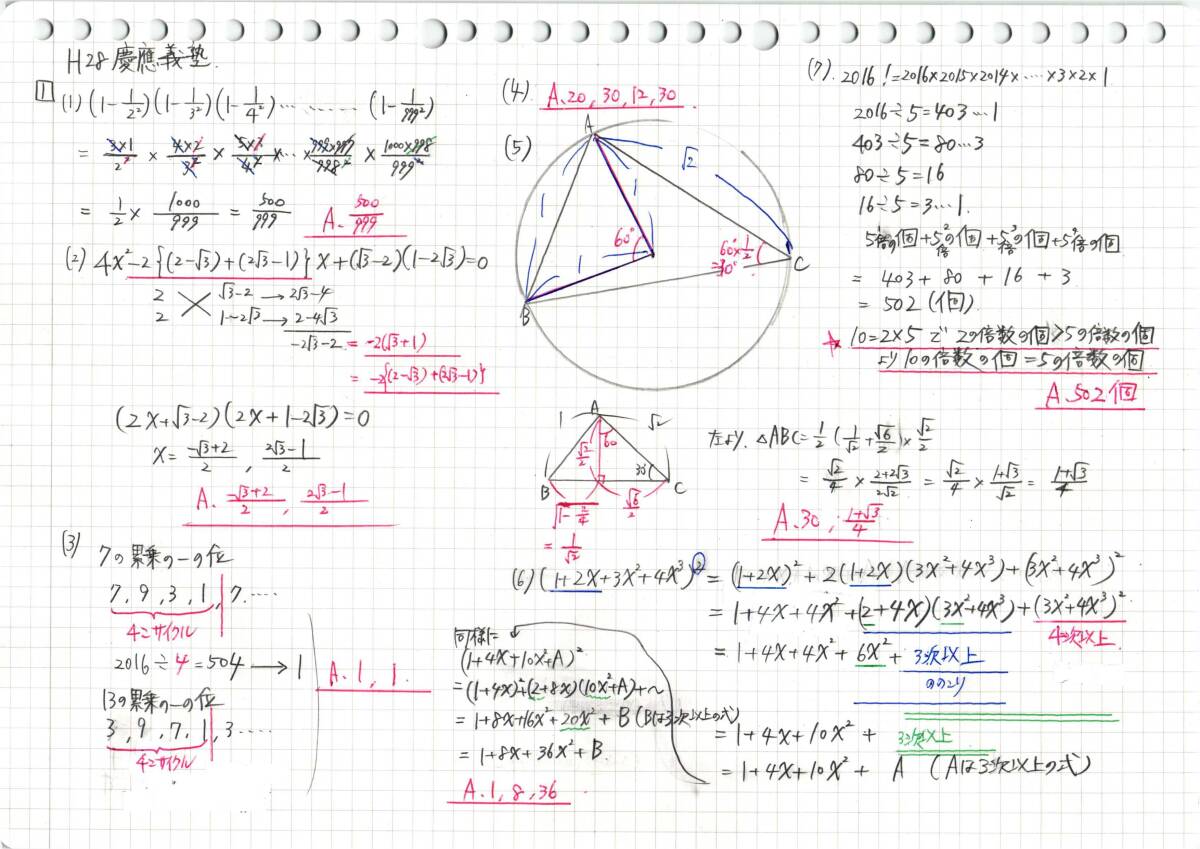 H28 慶應義塾.
1
(1) (1-1/2²)(1-1/3²)(1-1/4²)………(1-1/999²)
= 3×1/2² × 4×2/3² × 5×3/4² ×…× 999×997/998² × 1000×998/999²
= 1/2 × 1000/999 = 500/999 A. 500/999
(2) 4x²-2{(2-√3)+(2√3-1)}x+(√3-2)(1-2√3)=0
2 √3-2 → 2√3-4
2 1-2√3 → 2-4√3
-2√3-2 = -2(√3+1)
= -2{(2-√3)+(2√3-1)}
(2x+√3-2)(2x+1-2√3)=0
x= -√3+2/2 , 2√3-1/2
A. -√3+2/2 , 2√3-1/2
(3) 7の累乗の一の位
7, 9, 3, 1, 7.….
4コサイクル
2016÷4=504 → 1
13の累乗の一の位
3, 9, 7, 1, 3…..
4コサイクル
A. 1, 1.
(4) A. 20, 30, 12, 30
(5)
A
√2
1
1
1
60°
60°×1/2
=30°
B
C
A
1
√2
√2/2
60
30°
B
C
√1-2/4
√6/2
= 1/√2
左より. △ABC=1/2(1/√2+√6/2)×√2/2
= √2/4 × 2+2√3/2√2 = √2/4 × 1+√3/√2 = 1+√3/4
A. 30, 1+√3/4
(6) (1+2x+3x²+4x³)² = (1+2x)²+2(1+2x)(3x²+4x³)+(3x²+4x³)²
= 1+4x+4x²+(2+4x)(3x²+4x³)+(3x²+4x³)²
4次以上
= 1+4x+4x²+6x²+3次以上
ののこり
= 1+4x+10x²+ 3次以上
= 1+4x+10x²+ A (Aは3次以上の式)
同様に
(1+4x+10x²+A)²
= (1+4x)²+(2+8x)(10x²+A)+～
= 1+8x+16x²+20x²+B (Bは3次以上の式)
= 1+8x+36x²+B.
A. 1, 8, 36
(7). 2016!=2016×2015×2014×…×3×2×1
2016÷5=403…1
403÷5=80…3
80÷5=16
16÷5=3…1.
5¹倍の個+5²倍の個+5³倍の個+5⁴倍の個
= 403+80+16+3
= 502(個)
★ 10=2×5で 2の倍数の個>5の倍数の個
より10の倍数の個=5の倍数の個
A. 502個